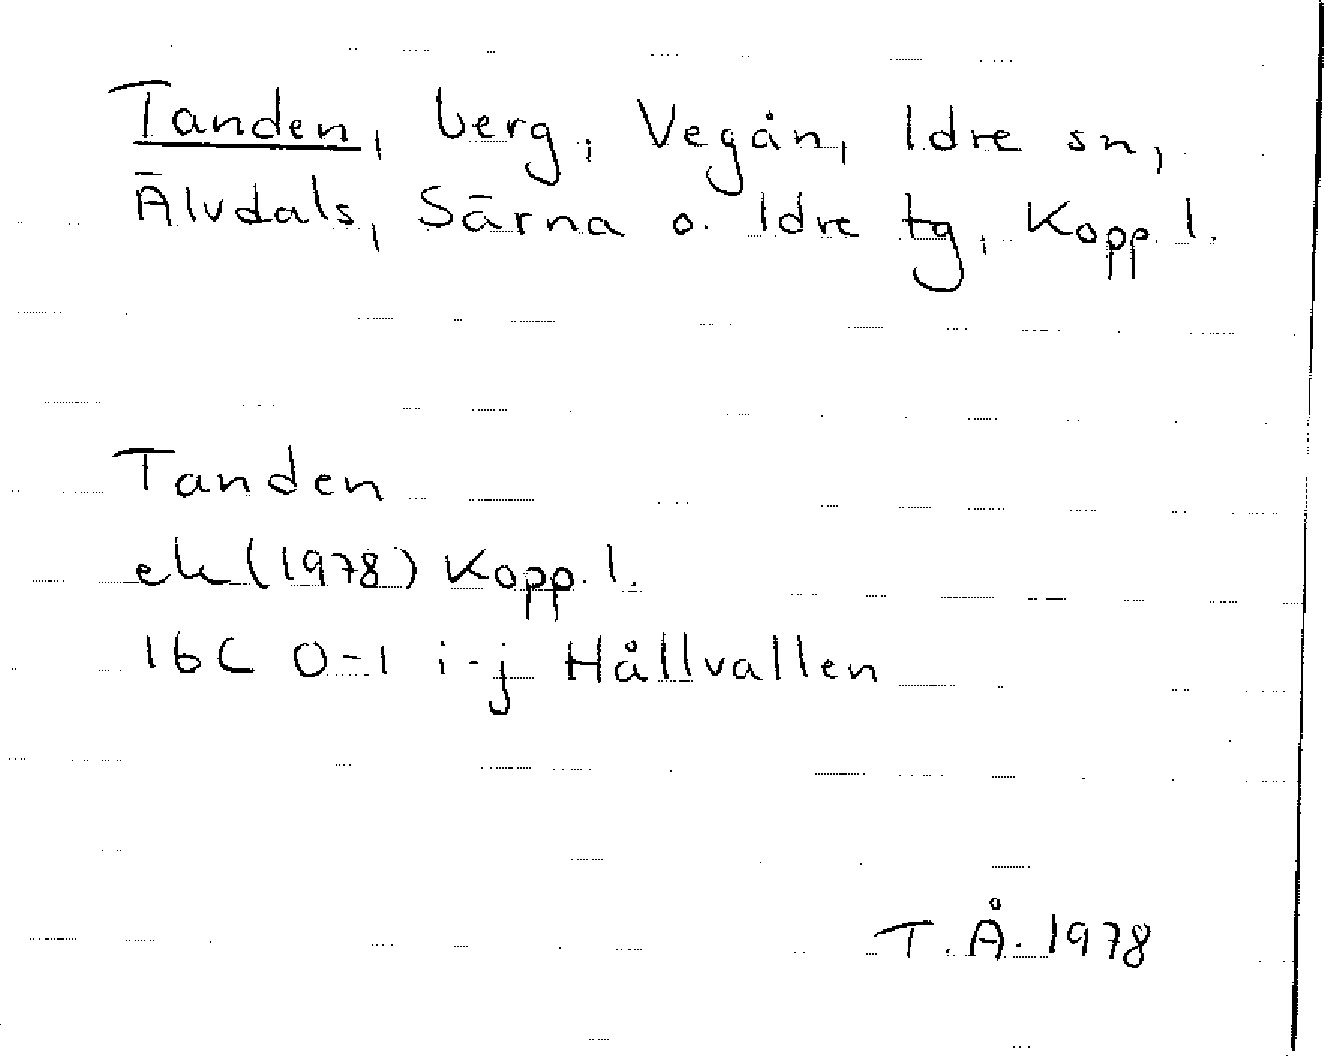 Tanden, berg, Vegån, Idre sn,
Älvdals, Särna o. Idre tg, Kopp. l.
Tanden
ek (1978) Kopp. l.
16C 0-1 i-j Hållvallen
T. Å. 1978